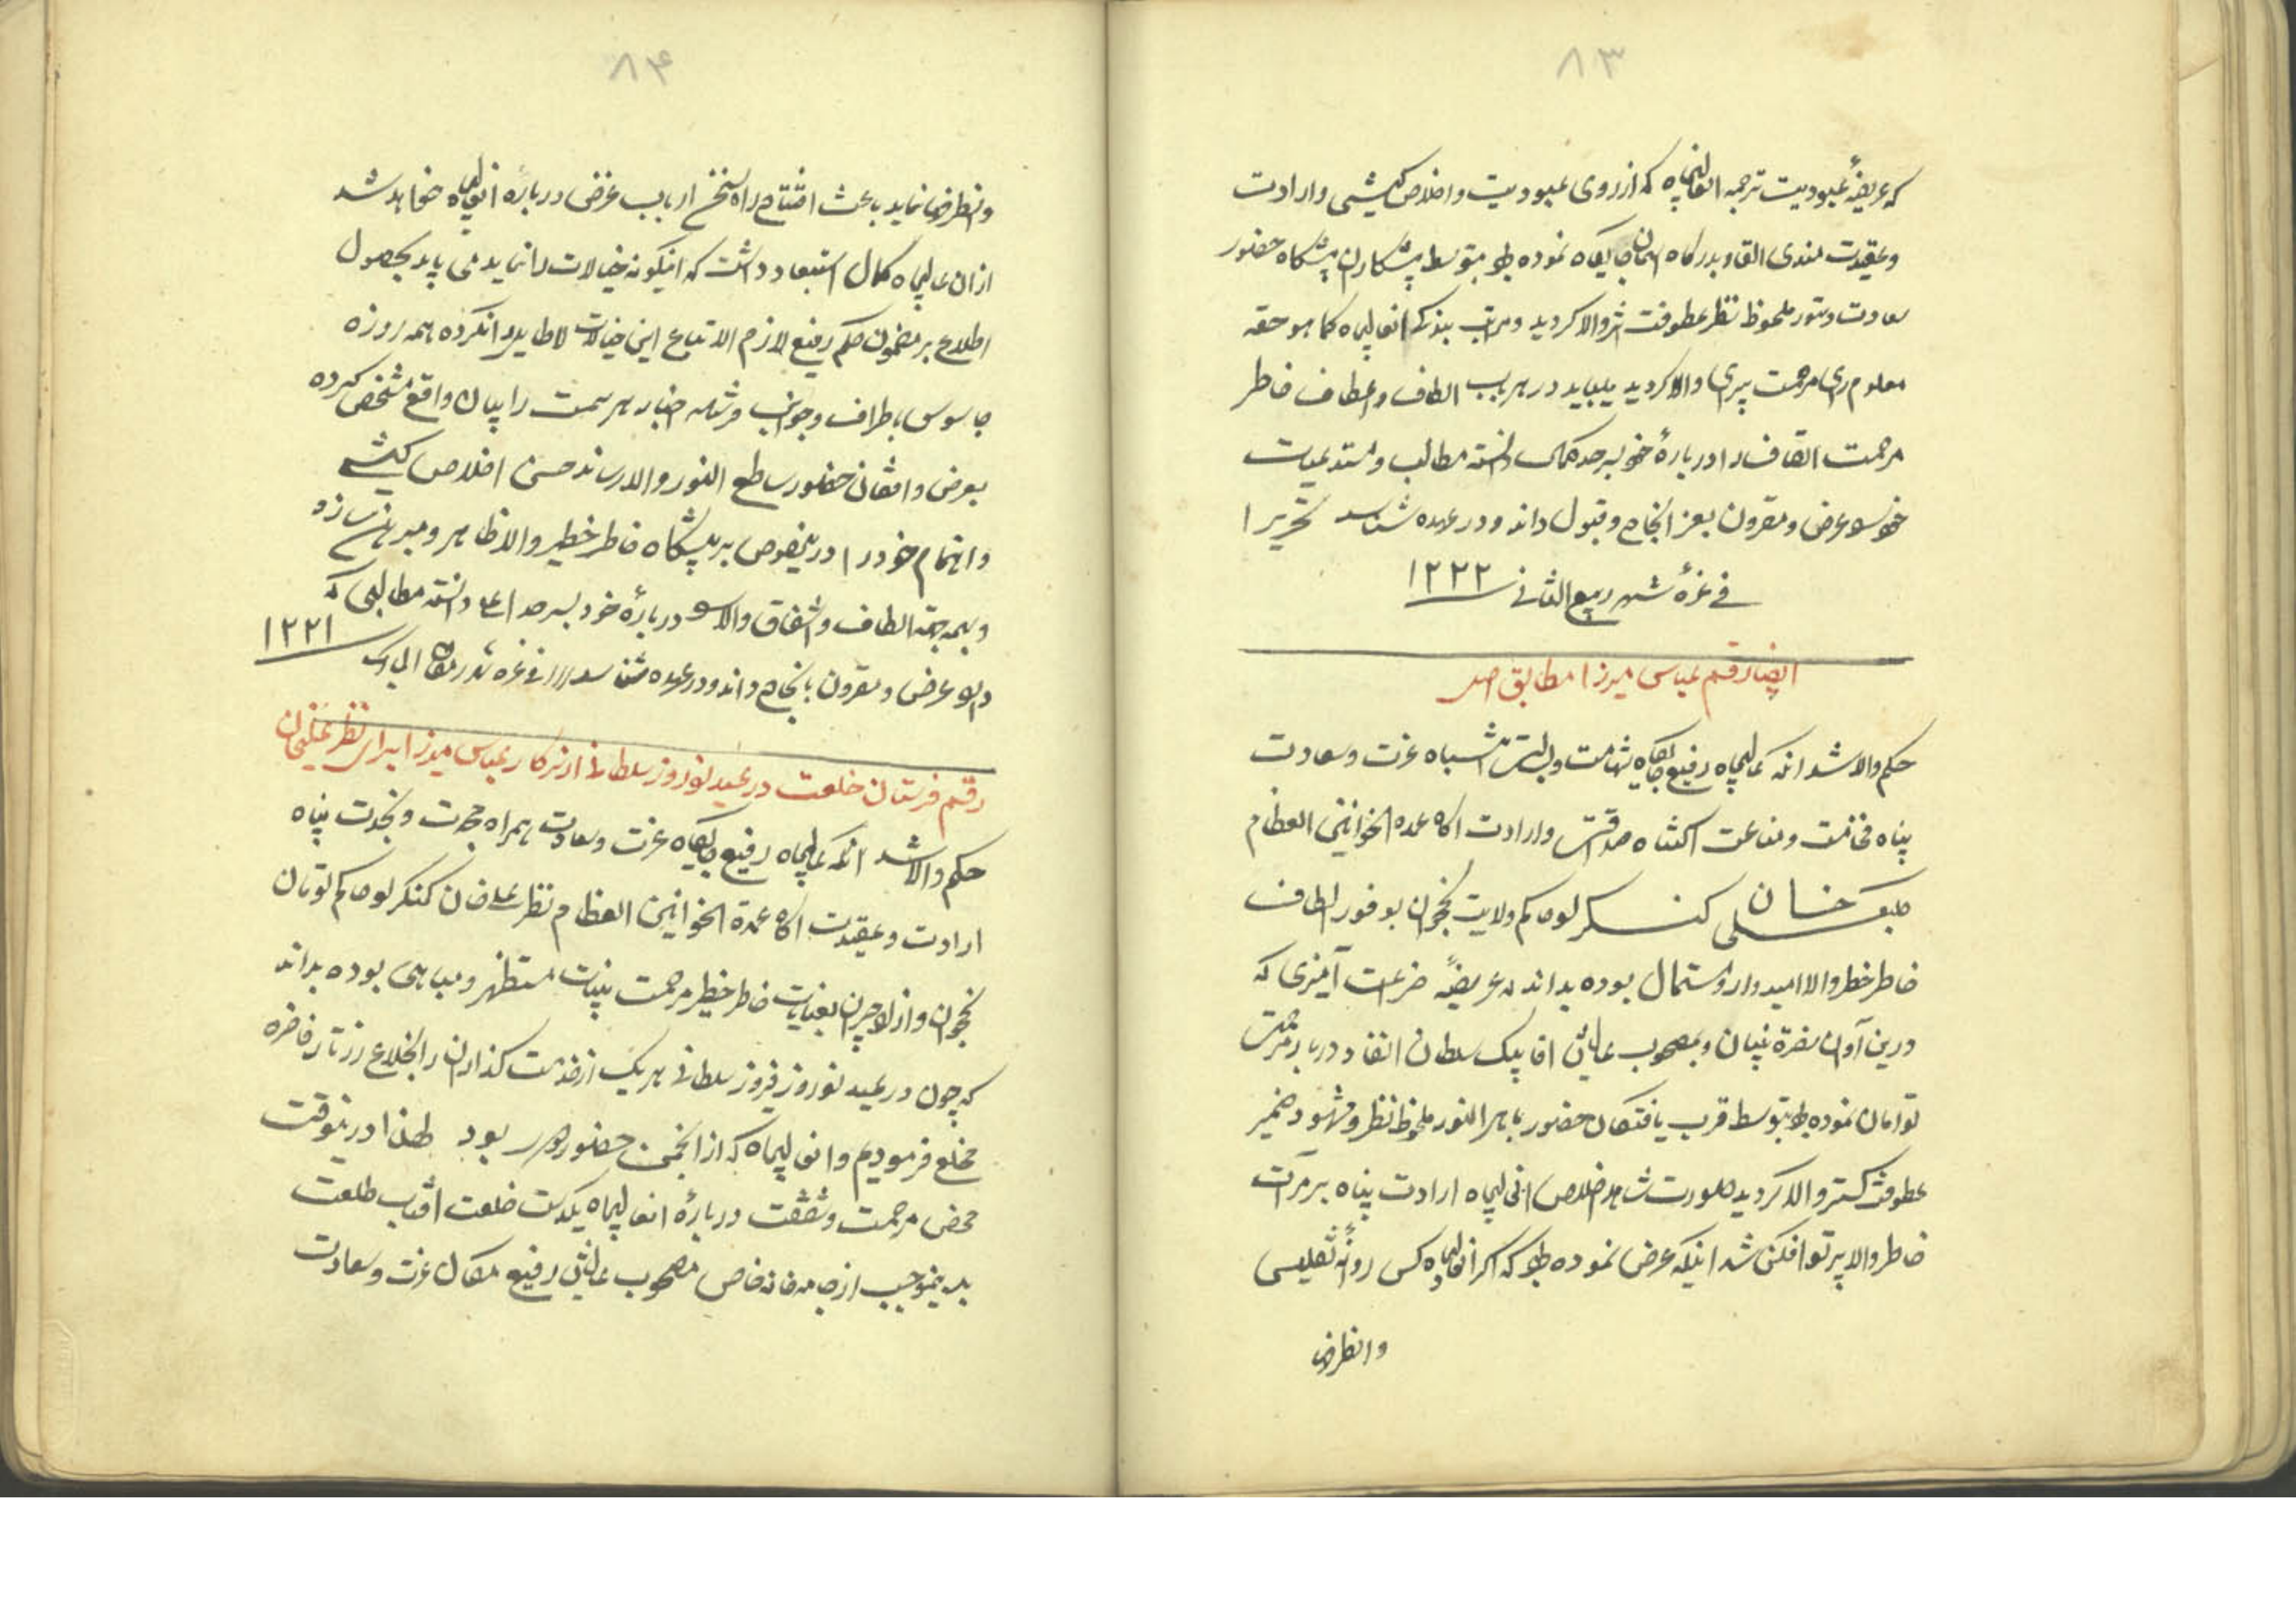 ۸۳
که عریضهٔ عبودیت ترجمه انعالیجاه که از روی عبودیت و اخلاص کیشی و ارادت
و عقیدت مندی انفاد بدرگاه آسمان جایگاه نموده بود بتوسط پیشکاران پیشگاه حضور
سعادت دستور ملحوظ نظر عطوفت اثر والا گردید و مراتب بندگی انعالیجاه کما هو حقه
معلوم رای مرحمت پیرای والا گردید میباید در هر باب الطاف و اعطاف خاطر
مرحمت اتصاف را دربارهٔ خود بسرحد کمال دانسته مطالب و مستدعیات
خود را عرض و مقرون بعز انجاح و قبول داند و در عهده شناسد تحریرا
فی غرهٔ شهر ربیع الثانی ۱۲۲۲
ایضا رقم عباس میرزا مطابق اصل
حکم والا شد آنکه عالیجاه رفیع جایگاه شهامت و بسالت انتباه عزت و سعادت
پناه فخامت و مناعت اکتناه صداقت و ارادت آگاه عمده الخوانین العظام
علی خان کنگرلو حاکم ولایت نخجوان بوفور الطاف
خاطر خطیر والا امیدوار و مستمال بوده بداند که عریضهٔ ضراعت آمیزی که
درین آوان نصرة بنیان و بمصحوب عالیشان اقا بیک سلطان انفاد دربار مرحمت
توامان نموده بود بتوسط قرب یافتگان حضور باهر النور ملحوظ نظر و مشهود ضمیر
عطوفت گستر والا گردید صورت شاهد اخلاص انعالیجاه ارادت پناه بر مرآت
خاطر والا پرتو افکن شد اینکه عرض نموده بود که اگر انعالیجاه کس روانهٔ تفلیس
و انطرفها
۸۴
و انطرفها نماید باعث افتتاح راه سخن ارباب غرض دربارهٔ انعالیجاه خواهد شد
از ان عالیجاه کمال استبعاد داشت که اینگونه خیالات را نماید می باید بحصول
اطلاع بر مضمون حکم رفیع لازم الاتباع این خیالات لاطایل را نکرده همه روزه
جاسوس باطراف و جوانب فرستاده اخبار هر سمت را بیان واقع مشخص کرده
بعرض واقفان حضور ساطع النور والا رساند حسن اخلاص کیشی
و اهتمام خود را درینخصوص بر پیشگاه خاطر خطیر والا ظاهر و مبرهن سازد
و بهمه جهة الطاف و اشفاق والا را دربارهٔ خود بسرحد اعلی دانسته مطالبی که
دارد عرض و مقرون بانجاح داند و در عهده شناسد تحریرا فی غره شهر رمضان المبارک ۱۲۲۱
رقم فرستادن خلعت در عید نوروز سلطانی از سرکار عباس میرزا برای نظر علیخان
حکم والا شد آنکه عالیجاه رفیع جایگاه عزت و سعادت همراه مجدت و نجدت پناه
ارادت و عقیدت آگاه عمدة الخوانین العظام نظر علی خان کنگرلو حاکم تومان
نخجوان و ازلاجیران بعنایات خاطر خطیر مرحمت بنیات مستظهر و مباهی بوده بداند
که چون در عید نوروز فیروز سلطانی هر یک از خدمت گذاران را بخلاع زرتار فاخره
مخلع فرمودیم و انعالیجاه که از انجمن حضور دور بود لهذا درینوقت
محض مرحمت و شفقت دربارهٔ انعالیجاه یکدست خلعت افتاب طلعت
بدینموجب از جامه خانه خاص مصحوب عالیشان رفیع مکان عزت و سعادت